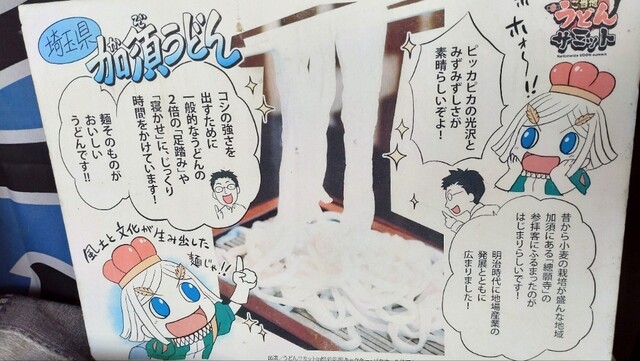 ご当地
うどん
サミット
埼玉県
加須うどん
かぞ
ホォ〜!!
ピッカピカの光沢と
みずみずしさが
素晴らしいぞよ!
コシの強さを
出すために
一般的なうどんの
2倍の「足踏み」や
「寝かせ」に、じっくり
時間をかけています!
麺そのものが
おいしい
うどんです!!
昔から小麦の栽培が盛んな地域
加須にある「總願寺」の
参拝客にふるまったのが
はじまりらしいです!
明治時代に地場産業の
発展とともに
広まりました!
風土と文化が生み出した
麺じゃ!!